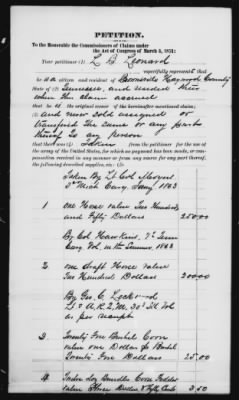 PETITION.
To the Honorable the Commissioners of Claims under
the Act of Congress of March 3, 1871:
Your petitioner (1) L B Leonard
respectfully represents that
he is a citizen and resident of Brownsville Haywood County
State of (2) Tennessee, and resided there
when this claim accrued
that he is the original owner of the hereinafter mentioned claim;
(3) and never sold assigned or
transferred the same or any parts
thereof to any person
That there was (4) taken from the petitioner for the use of
the army of the United States, for which no payment has been made, or com-
pensation received in any manner or from any source for any part thereof,
the following described supplies, etc.: (5)
Taken By Lt Col
3d Mich Cavy, 1863
1 One Horse value Two Hundred
and Fifty Dollars 250.00
By Col Hawkins, 7th Tenn
Cavy Vol. in the Summer, 1863
2 One draft Horse value
Two Hundred Dollars 200.00
By Geo. C. Lockwood
Lt & A.R.Q.M. 30 Ill Vol
as per receipt
3. Twenty Five Bushel Corn
value one Dollar per Bushel
Twenty Five Dollars 25.00
4. Bundles Corn Fodder
value Three Dollars & Fifty Cents 3.50